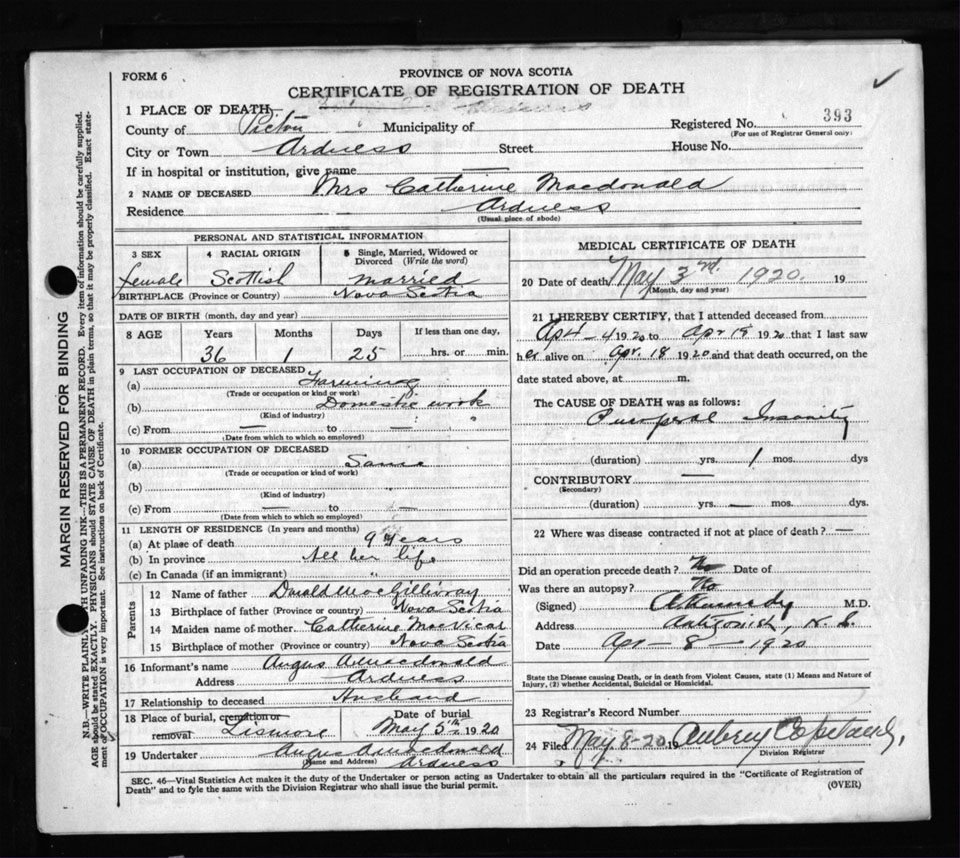 FORM 6
PROVINCE OF NOVA SCOTIA
CERTIFICATE OF REGISTRATION OF DEATH
1 PLACE OF DEATH
County of Pictou Municipality of Registered No. 393
(For use of Registrar General only)
City or Town Ardness Street House No.
If in hospital or institution, give name —
2 NAME OF DECEASED Mrs Catherine Macdonald
Residence Ardness
(Usual place of abode)
PERSONAL AND STATISTICAL INFORMATION
3 SEX 4 RACIAL ORIGIN 5 Single, Married, Widowed or Divorced (Write the word)
female Scottish married
BIRTHPLACE (Province or Country) Nova Scotia
DATE OF BIRTH (month, day and year)
8 AGE Years Months Days If less than one day,
36 1 25 hrs. or min.
9 LAST OCCUPATION OF DECEASED
(a) Farming
(Trade or occupation or kind of work)
(b) Domestic work
(Kind of industry)
(c) From — to —
(Date from which to which so employed)
10 FORMER OCCUPATION OF DECEASED
(a) Same
(Trade or occupation or kind of work)
(b)
(Kind of industry)
(c) From — to —
(Date from which to which so employed)
11 LENGTH OF RESIDENCE (In years and months)
(a) At place of death 9 years
(b) In province All her life
(c) In Canada (if an immigrant) "
Parents
12 Name of father Donald MacGillivray
13 Birthplace of father (Province or country) Nova Scotia
14 Maiden name of mother Catherine MacVicar
15 Birthplace of mother (Province or country) Nova Scotia
16 Informant's name Angus A Macdonald
Address Ardness
17 Relationship to deceased Husband
18 Place of burial, cremation or removal Lismore Date of burial May 5th 1920
19 Undertaker Angus Macdonald
(Name and Address) Ardness
MEDICAL CERTIFICATE OF DEATH
20 Date of death May 3rd 1920 19
(Month, day and year)
21 I HEREBY CERTIFY, that I attended deceased from
Apr 4 1920 to Apr 18 1920 that I last saw
her alive on Apr. 18 1920 and that death occurred, on the
date stated above, at m.
The CAUSE OF DEATH was as follows:
Puerperal Insanity
(duration) yrs. 1 mos. dys
CONTRIBUTORY —
(Secondary)
(duration) yrs. — mos. dys.
22 Where was disease contracted if not at place of death? —
Did an operation precede death? No Date of
Was there an autopsy? No
(Signed) M.D.
Address Antigonish, N.S.
Date Apr - 8 - 1920
State the Disease causing Death, or in death from Violent Causes, state (1) Means and Nature of Injury, (2) whether Accidental, Suicidal or Homicidal.
23 Registrar's Record Number
24 Filed May 8-20 19 Aubrey
Division Registrar
SEC. 46—Vital Statistics Act makes it the duty of the Undertaker or person acting as Undertaker to obtain all the particulars required in the "Certificate of Registration of
Death" and to fyle the same with the Division Registrar who shall issue the burial permit. (OVER)
MARGIN RESERVED FOR BINDING
N.B.—WRITE PLAINLY WITH UNFADING INK—THIS IS A PERMANENT RECORD. Every item of information should be carefully supplied.
AGE should be stated EXACTLY. PHYSICIANS should STATE CAUSE OF DEATH in plain terms, so that it may be properly classified. Exact statement
of OCCUPATION is very important. See instructions on back of Certificate.